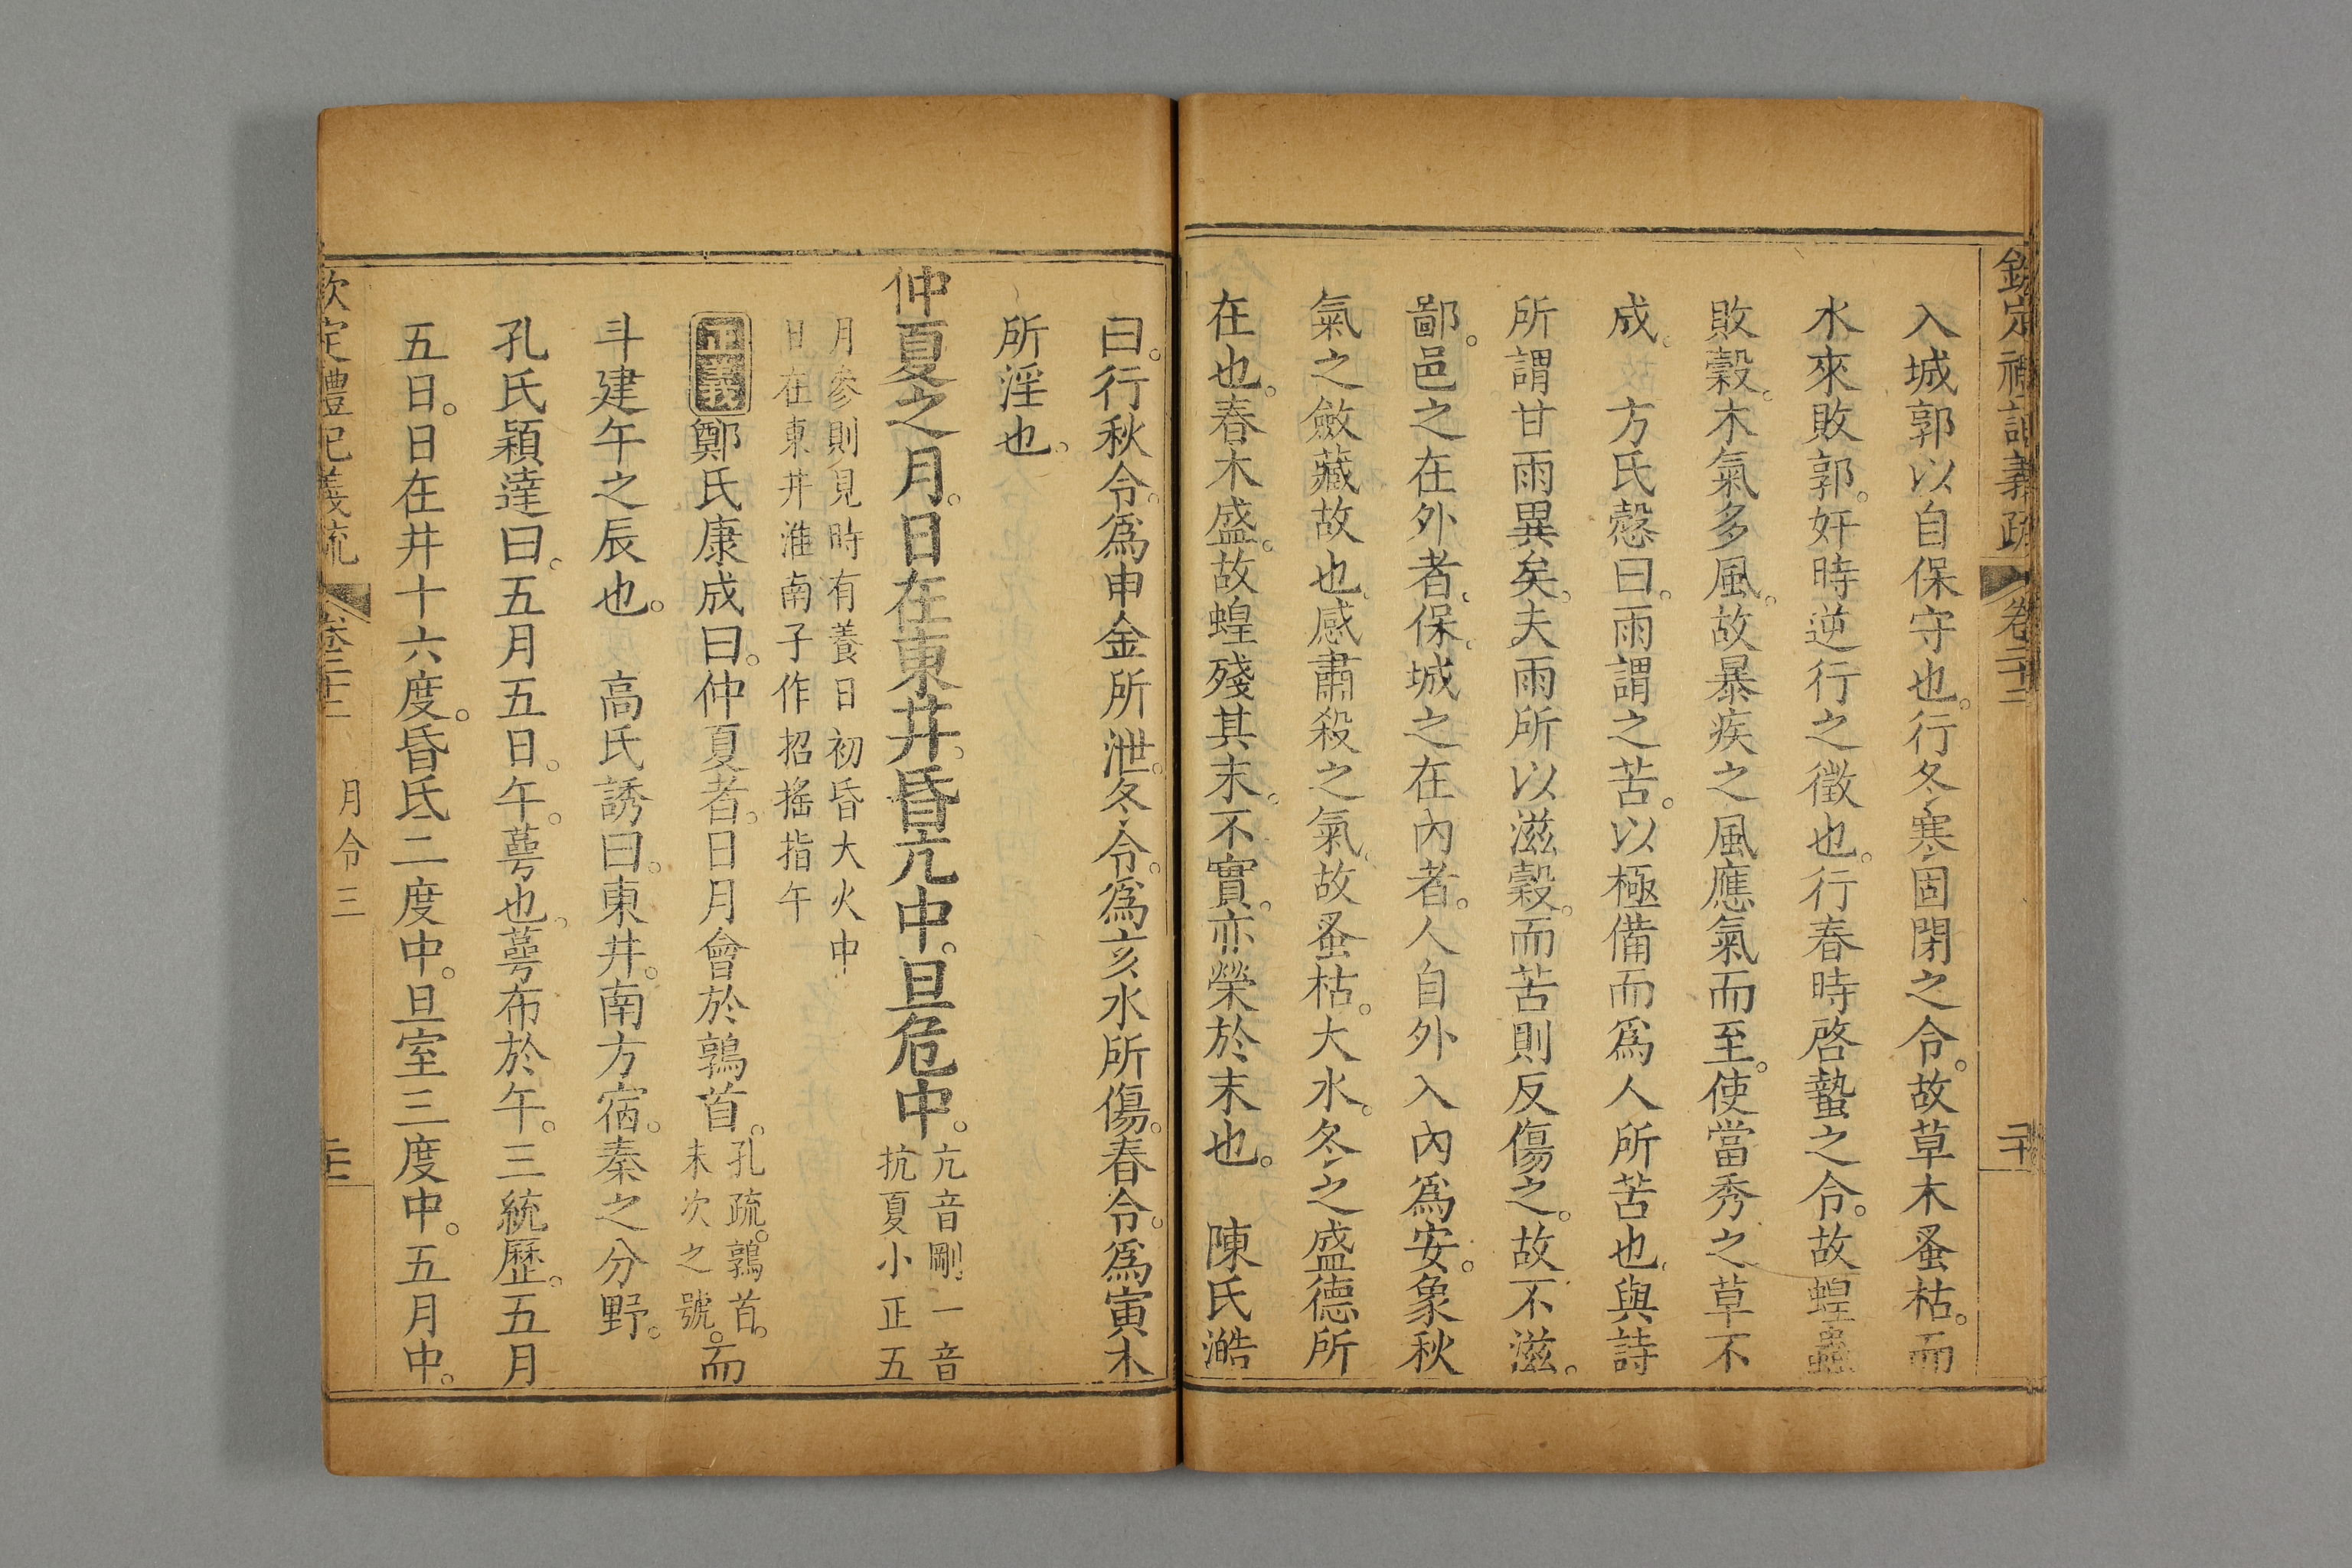 欽定禮記義疏 卷二十二 二十
入城郭以自保守也。行冬寒固閉之令。故草木蚤枯。而
水來敗郭。奸時逆行之徵也。行春時啓蟄之令。故蝗蟲
敗穀。木氣多風。故暴疾之風應氣而至。使當秀之草不
成。方氏慤曰。雨謂之苦。以極備而爲人所苦也。與詩
所謂甘雨異矣。夫雨所以滋穀。而苦則反傷之。故不滋。
鄙。邑之在外者。保。城之在內者。人自外入內爲安。象秋
氣之斂藏故也。感肅殺之氣。故蚤枯。大水。冬之盛德所
在也。春木盛。故蝗殘其末。不實。亦榮於末也。 陳氏澔
曰。行秋令。爲申金所泄。冬令。爲亥水所傷。春令。爲寅木
所淫也。
仲夏之月。日在東井。昏亢中。旦危中。亢音剛。一音
抗夏小正五
月參則見時有養日初昏大火中
日在東井淮南子作招搖指午
正義鄭氏康成曰。仲夏者。日月會於鶉首。孔疏。鶉首。
未次之號。而
斗建午之辰也。 高氏誘曰。東井。南方宿。秦之分野。
孔氏穎達曰。五月五日。午。蕚也。蕚布於午。三統歷。五月
五日。日在井十六度。昏氐二度中。旦室三度中。五月中。
欽定禮記義疏 卷二十二 月令三